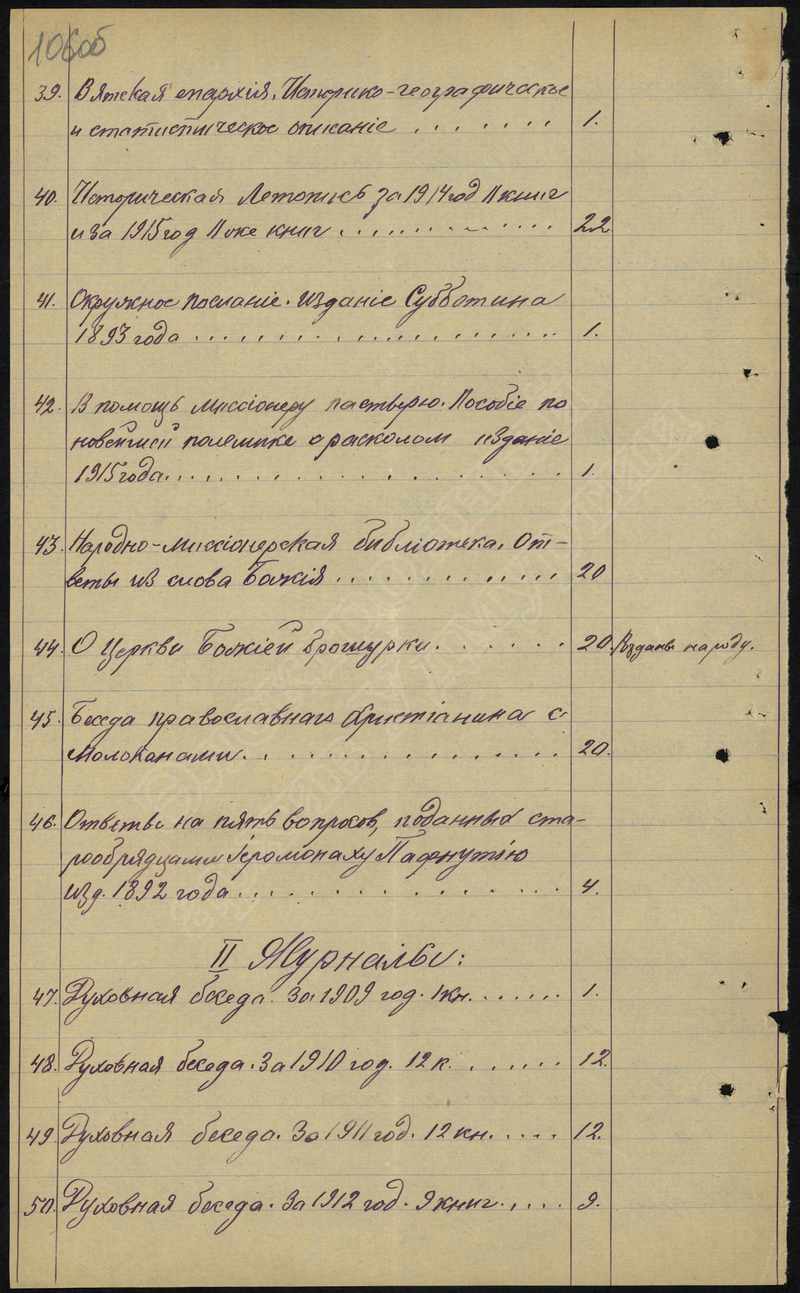 106об
39. Вятская епархія. Историко-географическое
и статистическое описаніе . . . . . . . 1.
40. Историческая Летопись за 1914 год 11 книг
и за 1915 год 11 же книг . . . . . . . . . . . . 22
41. Окружное посланіе. Изданіе Субботина
1893 года . . . . . . . . . . . . . . . . . . . . 1.
42. В помощь миссіонеру пастырю. Пособіе по
новейшей полемике с расколом изданіе
1915 года. . . . . . . . . . . . . . . . . . . 1.
43. Народно-миссіонерская библіотека. От-
веты из слова Божія . . . . . . . . . . . . 20
44. О Церкви Божіей брошурки. . . . . . . 20. Розданы народу.
45. Беседа православнаго христіанина с
молоканами. . . . . . . . . . . . . . . 20.
46. Ответы на пять вопросов, поданных ста-
рообрядцами Іеромонаху Пафнутію
изд. 1892 года . . . . . . . . . . . . . . . 4.
II Журналы:
47. Духовная беседа. За 1909 год. 1 кн. . . . . . . 1.
48. Духовная беседа. За 1910 год. 12 к. . . . . . . 12.
49. Духовная беседа. За 1911 год. 12 кн. . . . . 12.
50. Духовная беседа. За 1912 год. 9 книг. . . . . 9.